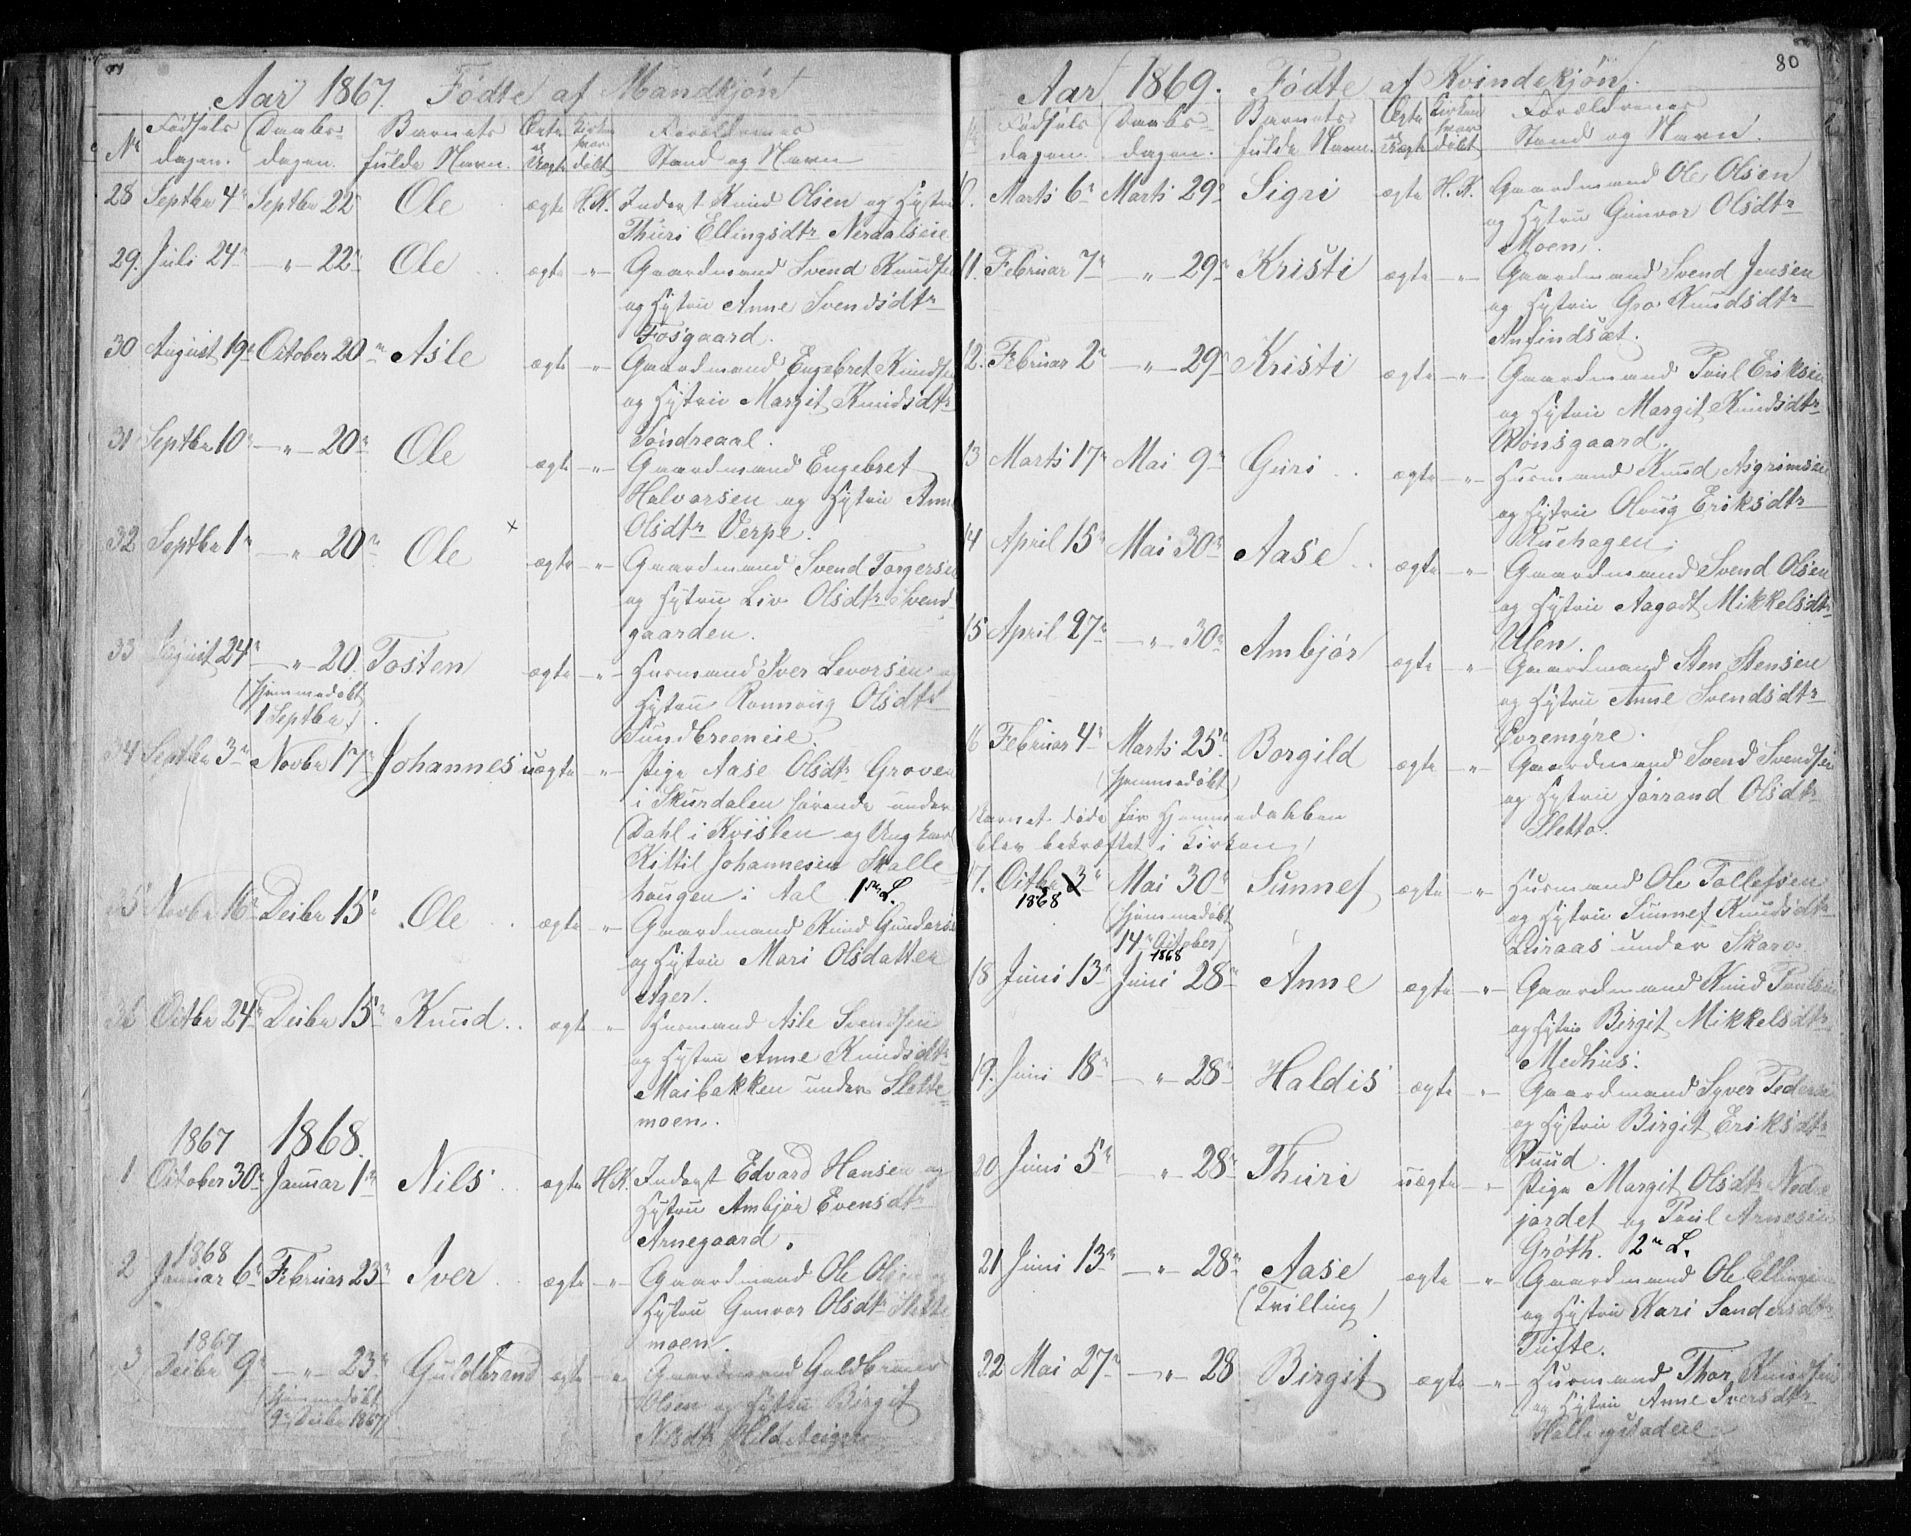 Aar 1867. Fødte af Mandkjøn
No Fødsels dagen. Daabs dagen. Barnets fulde Navn. Ægte el. Uægte Kirken hvor døbt Forældrenes Stand og Navn
28 Septbr 4de Septbr 22 Ole ægte H.K. Inderst Knud Olsen og Hustru
Thuri Ellingsdtr Nerdalseie
29. Juli 24de —„— 22de Ole ægte —„— Gaardmand Svend Knudsen
og Hustru Anne Svendsdtr
Fosgaard.
30 August 19de October 20de Asle ægte —„— Gaardmand Engebret Knudsen
og Hustru Margit Knudsdtr
Søndreaal.
31 Septbr 10de —„— 20de Ole ægte —„— Gaardmand Engebret
Halvorsen og Hustru Anne
Olsdtr Verpe.
32 Septbr 1ste —„— 20de Ole ægte —„— Gaardmand Svend Torgersen
og Hustru Liv Olsdtr Svend
gaarden.
33 August 24de —„— 20. Tosten ægte —„— Husmand Iver Levorsen og
(Hjemmedøbt Hustru Rannoug Olsdtr
1 Septbr) Sundbreeneie.
34 Septbr 3de Novbr 17de Johannes uægte —„— Pige Aase Olsdtr Groven
i Skurdalen hørende under
Dahl i Kvislen og Ungkarl
Kittil Johannesen Skalle
haugen i Aal 1ste L.
35 Novbr 16de Decbr 15de Ole ægte —„— Gaardmand Knud Gundersen
og Hustru Mari Olsdatter
Ager.
36 Octbr 24de Decbr 15de Knud ægte —„— Husmand Asle Svendsen
og Hustru Anne Knudsdtr
Maibakken under Slette-
moen.
1867 1868.
1 October 30te Januar 1ste Nils ægte H.K. Inderst Edvard Hansen og
Hustru Ambjør Evensdtr
Arnegaard.
1868
2 Januar 6te Februar 23de Iver ægte —„— Gaardmand Ole Olsen og
Hustru Gunvor Olsdtr Slette
moen.
1867
3 Decbr 9de —„— 23de Guldbrand ægte —„— Gaardmand Guldbrand
(Hjemmedøbt Olsen og Hustru Birgit
9de Decbr 1867) Nilsdtr
80
Aar 1869. Fødte af Kvindekjøn.
Fødsels dagen. Daabs- dagen. Barnets fulde Navn. Ægte el. Uægte Kirken hvor døbt Forældrenes Stand og Navn.
10. Marts 6te Marts 29de Sigri ægte H.K. Gaardmand Ole Olsen
og Hustru Gunvor Olsdtr
Moen.
11. Februar 7de —„— 29de Kristi ægte —„— Gaardmand Svend Jensen
og Hustru Gro Knudsdtr
Anfindsæt.
12. Februar 2de —„— 29de Kristi ægte —„— Gaardmand Poul Eriksen
og Hustru Margit Knudsdtr
Rønsgaard.
13 Marts 17de Mai 9de Guri ægte —„— Husmand Knud Asgrimsen
og Hustru Oloug Eriksdtr
Ruehagen.
14 April 15de Mai 30te Aase ægte —„— Gaardmand Svend Olsen
og Hustru Aagodt Mikkelsdtr
Ulen.
15 April 27de —„— 30te Ambjør ægte —„— Gaardmand Sten Stensen
og Hustru Anne Svendsdtr
Evremyre.
16 Februar 4de Marts 25de Borgild ægte —„— Gaardmand Svend Svendsen
(Hjemmedøbt) og Hustru Jørrand Olsdtr
Barnet døde før Hjemmedaaben Sletto.
blev bekræftet i Kirken)
17. Octbr 3de Mai 30te Sunnef ægte —„— Husmand Ole Tollefsen
1868 (Hjemmedøbt og Hustru Sunnef Knudsdtr
14de October) 1868 Liraas under Skaro.
18 Juni 13de Juni 28de Anne ægte —„— Gaardmand Knud Poulsen
og Hustru Birgit Mikkelsdtr
Medhus.
19. Juni 18de —„— 28de Haldis ægte —„— Gaardmand Syver Pedersen
og Hustru Birgit Eriksdtr
Ruud.
20 Juni 5te —„— 28de Thuri uægte —„— Pige Margit Olsdtr Nedre
jordet og Poul Arnesen
Grøth. 2det L.
21 Juni 13de —„— 28de Aase ægte —„— Gaardmand Ole Ellingsen
(Tvilling) og Hustru Kari Sandersdtr
Tufte.
22 Mai 27de —„— 28 Birgit ægte —„— Husmand Thor Knudsen
og Hustru Anne Iversdtr
Hallingstadeie